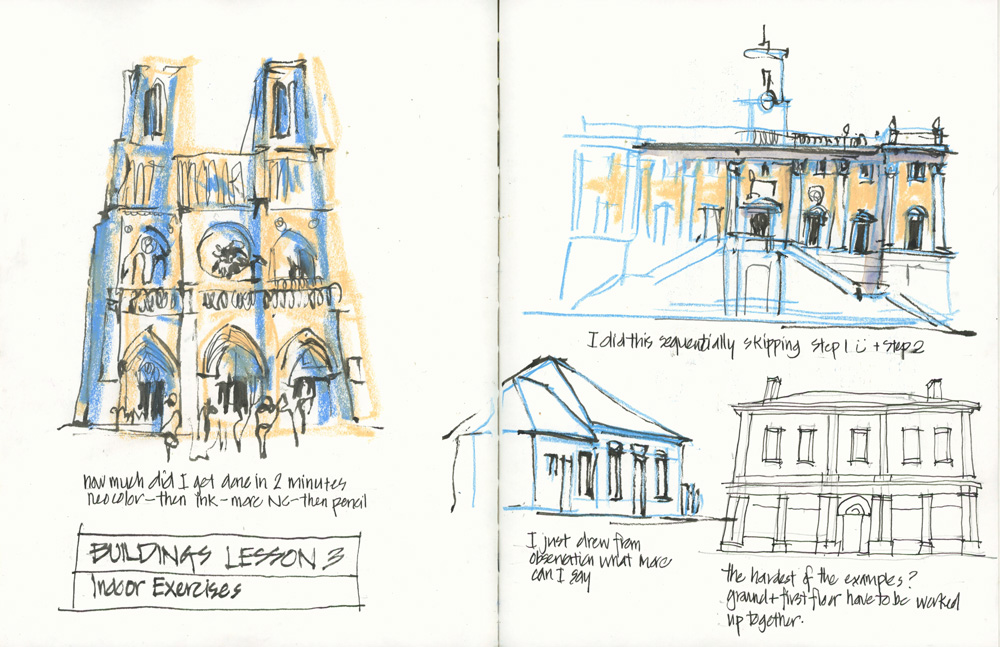 how much did I get done in 2 minutes
neocolor-then ink-more NC-then pencil
BUILDINGS LESSON 3
Indoor Exercises
I did this sequentially skipping step 1 ü + step 2
I just drew from
observation what more
can I say
the hardest of the examples?
ground + first floor have to be worked
up together.